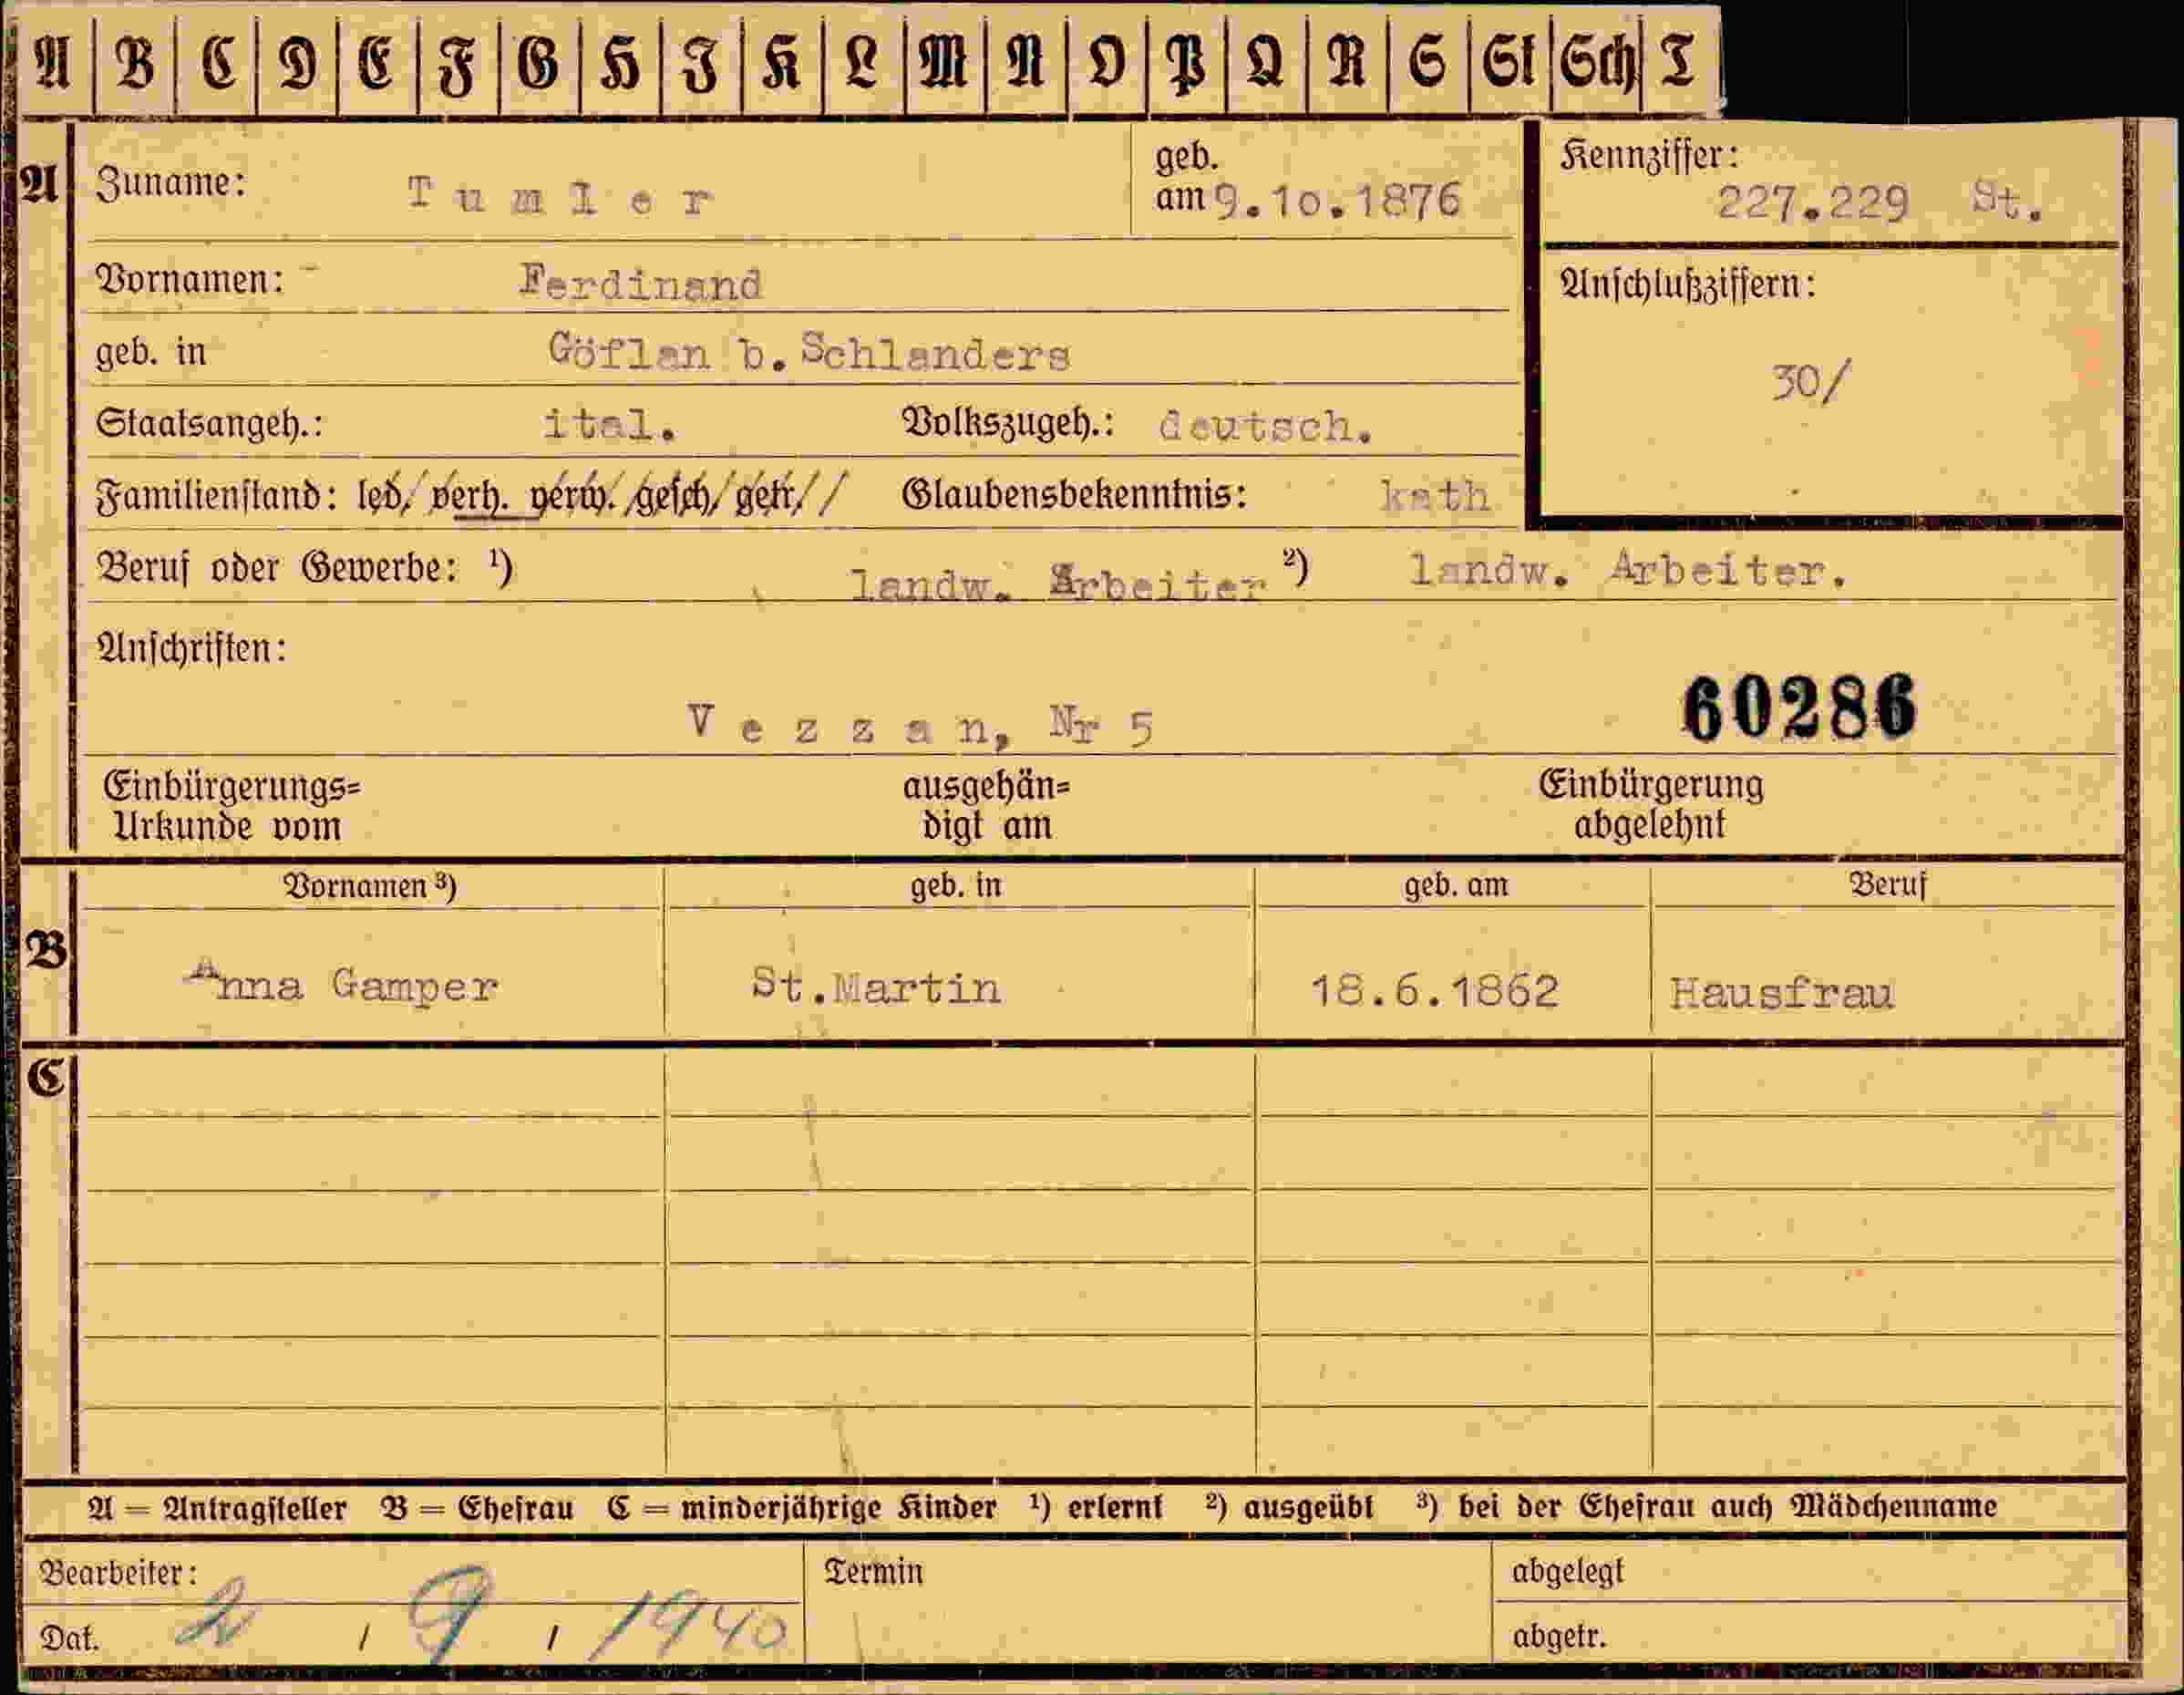 A B C D E F G H I K L M N O P Q R S St Sch T
A Zuname: Tumler geb. am 9.10.1876 Kennziffer: 227.229 St.
Vornamen: Ferdinand Anschlußziffern:
geb. in Göflan b. Schlanders 30/
Staatsangeh.: ital. Volkszugeh.: deutsch.
Familienstand: led/ verh. verw. /gesch/ getr// Glaubensbekenntnis: kath
Beruf oder Gewerbe: 1) landw. Arbeiter 2) landw. Arbeiter.
Anschriften:
Vezzan, Nr 5 60286
Einbürgerungs= ausgehän= Einbürgerung
Urkunde vom digt am abgelehnt
Vornamen 3) geb. in geb. am Beruf
B Anna Gamper St.Martin 18.6.1862 Hausfrau
C
A = Antragsteller B = Ehefrau C = minderjährige Kinder 1) erlernt 2) ausgeübt 3) bei der Ehefrau auch Mädchenname
Bearbeiter: Termin abgelegt
Dat. 2 / 9 / 1940 abgetr.